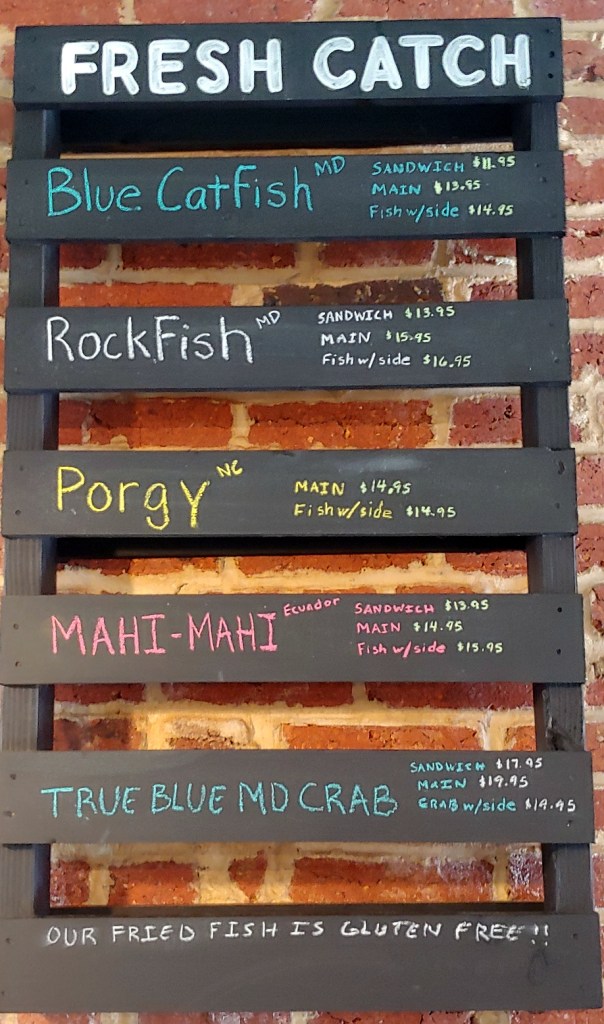 FRESH CATCH
Blue Catfish MD
SANDWICH $11.95
MAIN $13.95
Fish w/side $14.95
RockFish MD
SANDWICH $13.95
MAIN $15.95
Fish w/side $16.95
Porgy NC
MAIN $14.95
Fish w/side $14.95
MAHI-MAHI Ecuador
SANDWICH $13.95
MAIN $14.95
Fish w/side $15.95
TRUE BLUE MD CRAB
SANDWICH $17.95
MAIN $19.95
CRAB w/side $19.95
OUR FRIED FISH IS GLUTEN FREE!!